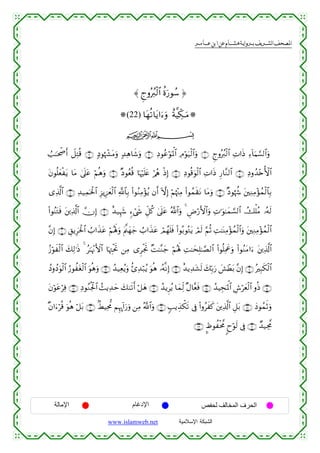 المصحف الشريف برواية هشام عن ابن عامر
﴿ سُورَةُ ٱلْبُرُوجِ ﴾
❁ مَكِّيَّةٌ وَءَايَاتُهَا (22) ❁
بِسْمِ ٱللَّهِ ٱلرَّحْمَٰنِ ٱلرَّحِيمِ
وَٱلسَّمَآءِ ذَاتِ ٱلْبُرُوجِ ۝ وَٱلْيَوْمِ ٱلْمَوْعُودِ ۝ وَشَاهِدٍ وَمَشْهُودٍ ۝ قُتِلَ أَصْحَٰبُ
ٱلْأُخْدُودِ ۝ ٱلنَّارِ ذَاتِ ٱلْوَقُودِ ۝ إِذْ هُمْ عَلَيْهَا قُعُودٌ ۝ وَهُمْ عَلَىٰ مَا يَفْعَلُونَ
بِٱلْمُؤْمِنِينَ شُهُودٌ ۝ وَمَا نَقَمُوا۟ مِنْهُمْ إِلَّآ أَن يُؤْمِنُوا۟ بِٱللَّهِ ٱلْعَزِيزِ ٱلْحَمِيدِ ۝ ٱلَّذِى
لَهُۥ مُلْكُ ٱلسَّمَٰوَٰتِ وَٱلْأَرْضِ ۚ وَٱللَّهُ عَلَىٰ كُلِّ شَىْءٍ شَهِيدٌ ۝ إِنَّ ٱلَّذِينَ فَتَنُوا۟
ٱلْمُؤْمِنِينَ وَٱلْمُؤْمِنَٰتِ ثُمَّ لَمْ يَتُوبُوا۟ فَلَهُمْ عَذَابُ جَهَنَّمَ وَلَهُمْ عَذَابُ ٱلْحَرِيقِ ۝ إِنَّ
ٱلَّذِينَ ءَامَنُوا۟ وَعَمِلُوا۟ ٱلصَّٰلِحَٰتِ لَهُمْ جَنَّٰتٌ تَجْرِى مِن تَحْتِهَا ٱلْأَنْهَٰرُ ۚ ذَٰلِكَ ٱلْفَوْزُ
ٱلْكَبِيرُ ۝ إِنَّ بَطْشَ رَبِّكَ لَشَدِيدٌ ۝ إِنَّهُۥ هُوَ يُبْدِئُ وَيُعِيدُ ۝ وَهُوَ ٱلْغَفُورُ ٱلْوَدُودُ
۝ ذُو ٱلْعَرْشِ ٱلْمَجِيدُ ۝ فَعَّالٌ لِّمَا يُرِيدُ ۝ هَلْ أَتَىٰكَ حَدِيثُ ٱلْجُنُودِ ۝ فِرْعَوْنَ
وَثَمُودَ ۝ بَلِ ٱلَّذِينَ كَفَرُوا۟ فِى تَكْذِيبٍ ۝ وَٱللَّهُ مِن وَرَآئِهِم مُّحِيطٌۢ ۝ بَلْ هُوَ قُرْءَانٌ
مَّجِيدٌ ۝ فِى لَوْحٍ مَّحْفُوظٍۭ ۝
الحرف المخالف لحفص الإدغام الإمالة
الشبكة الإسلامية www.islamweb.net